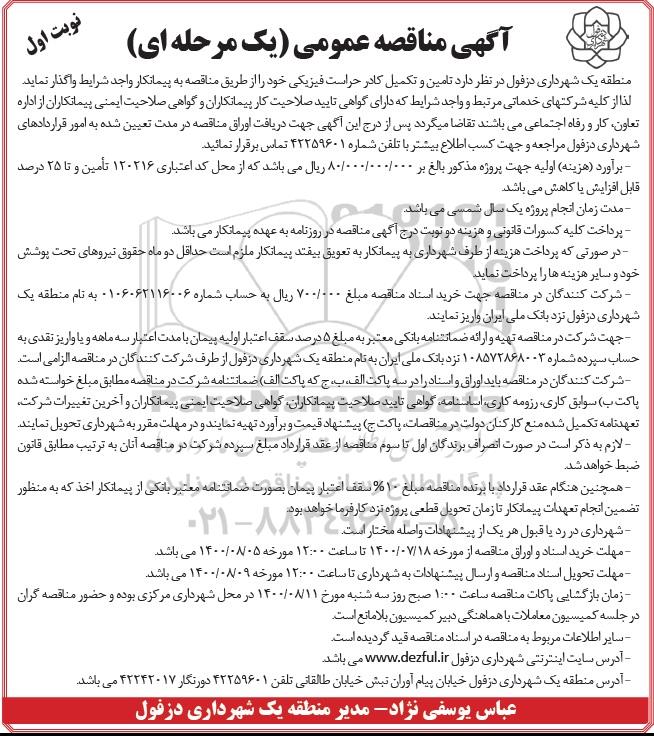 نوبت اول
آگهی مناقصه عمومی (یک مرحله ای)
منطقه یک شهرداری دزفول در نظر دارد تامین و تکمیل کادر حراست فیزیکی خود را از طریق مناقصه به پیمانکار واجد شرایط واگذار نماید.
لذا از کلیه شرکتهای خدماتی مرتبط و واجد شرایط که دارای گواهی تایید صلاحیت کار پیماکاران و گواهی صلاحیت ایمنی پیمانکاران از اداره
تعاون، کار و رفاه اجتماعی می باشند تقاضا میگردد پس از درج این آگهی جهت دریافت اوراق مناقصه در مدت تعیین شده به امور قراردادهای
شهرداری دزفول مراجعه و جهت کسب اطلاع بیشتر با تلفن شماره ۴۲۲۵۹۶۰۱ تماس برقرار نمائید.
- برآورد (هزینه) اولیه جهت پروژه مذکور بالغ بر ۸۰/۰۰۰/۰۰۰/۰۰۰ ریال می باشد که از محل کد اعتباری ۱۲۰۲۱۶ تأمین و تا ۲۵ درصد
قابل افزایش یا کاهش می باشد.
- مدت زمان انجام پروژه یک سال شمسی می باشد.
- پرداخت کلیه کسورات قانونی و هزینه دو نوبت درج آگهی مناقصه در روزنامه به عهده پیمانکار می باشد.
- در صورتی که پرداخت هزینه از طرف شهرداری به پیمانکار به تعویق بیفتد پیمانکار ملزم است حداقل دو ماه حقوق نیروهای تحت پوشش
خود و سایر هزینه ها را پرداخت نماید.
- شرکت کنندگان در مناقصه جهت خرید اسناد مناقصه مبلغ ۷۰۰/۰۰۰ ریال به حساب شماره ۰۱۰۶۰۶۲۱۱۶۰۰۶ به نام منطقه یک
شهرداری دزفول نزد بانک ملی ایران واریز نمایند.
- جهت شرکت در مناقصه تهیه و ارائه ضمانتنامه بانکی معتبر به مبلغ ۵ درصد سقف اعتبار اولیه پیمان با مدت اعتبار سه ماهه و یا واریز نقدی به
حساب سپرده شماره ۱۰۸۵۷۲۸۶۸۰۰۳ نزد بانک ملی ایران به نام منطقه یک شهرداری دزفول از طرف شرکت کنندگان در مناقصه الزامی است.
- شرکت کنندگان در مناقصه باید اوراق و اسناد را در سه پاکت الف، ب، ج که پاکت الف) ضمانتنامه شرکت در مناقصه مطابق مبلغ خواسته شده
پاکت ب) سوابق کاری، رزومه کاری، اساسنامه، گواهی تایید صلاحیت پیمانکاران، گواهی صلاحیت ایمنی پیمانکاران و آخرین تغییرات شرکت،
تعهدنامه تکمیل شده منع کارکنان دولت در مناقصات، پاکت ج) پیشنهاد قیمت و برآورد تهیه نمایند و در مهلت مقرر به شهرداری تحویل نمایند.
- لازم به ذکر است در صورت انصراف برندگان اول تا سوم مناقصه از عقد قرارداد مبلغ سپرده شرکت در مناقصه آنان به ترتیب مطابق قانون
ضبط خواهد شد.
- همچنین هنگام عقد قرارداد با برنده مناقصه مبلغ ۱۰% سقف اعتبار پیمان بصورت ضمانتنامه معتبر بانکی از پیمانکار اخذ که به منظور
تضمین انجام تعهدات پیمانکار تا زمان تحویل قطعی پروژه نزد کارفرما خواهد بود.
- شهرداری در رد یا قبول هر یک از پیشنهادات واصله مختار است.
- مهلت خرید اسناد و اوراق مناقصه از مورخه ۱۴۰۰/۰۷/۱۸ تا ساعت ۱۲:۰۰ مورخه ۱۴۰۰/۰۸/۰۵ می باشد.
- مهلت تحویل اسناد مناقصه و ارسال پیشنهادات به شهرداری تا ساعت ۱۲:۰۰ مورخه ۱۴۰۰/۰۸/۰۹ می باشد.
- زمان بازگشایی پاکات مناقصه ساعت ۱:۰۰ صبح روز سه شنبه مورخ ۱۴۰۰/۰۸/۱۱ در محل شهرداری مرکزی بوده و حضور مناقصه گران
در جلسه کمیسیون معاملات با هماهنگی دبیر کمیسیون بلامانع است.
- سایر اطلاعات مربوط به مناقصه در اسناد مناقصه قید گردیده است.
- آدرس سایت اینترنتی شهرداری دزفول www.dezful.ir می باشد.
- آدرس منطقه یک شهرداری دزفول خیابان پیام آوران نبش خیابان طالقانی تلفن ۴۲۲۵۹۶۰۱ دورنگار ۴۲۲۴۲۰۱۷ می باشد.
عباس یوسفی نژاد- مدیر منطقه یک شهرداری دزفول